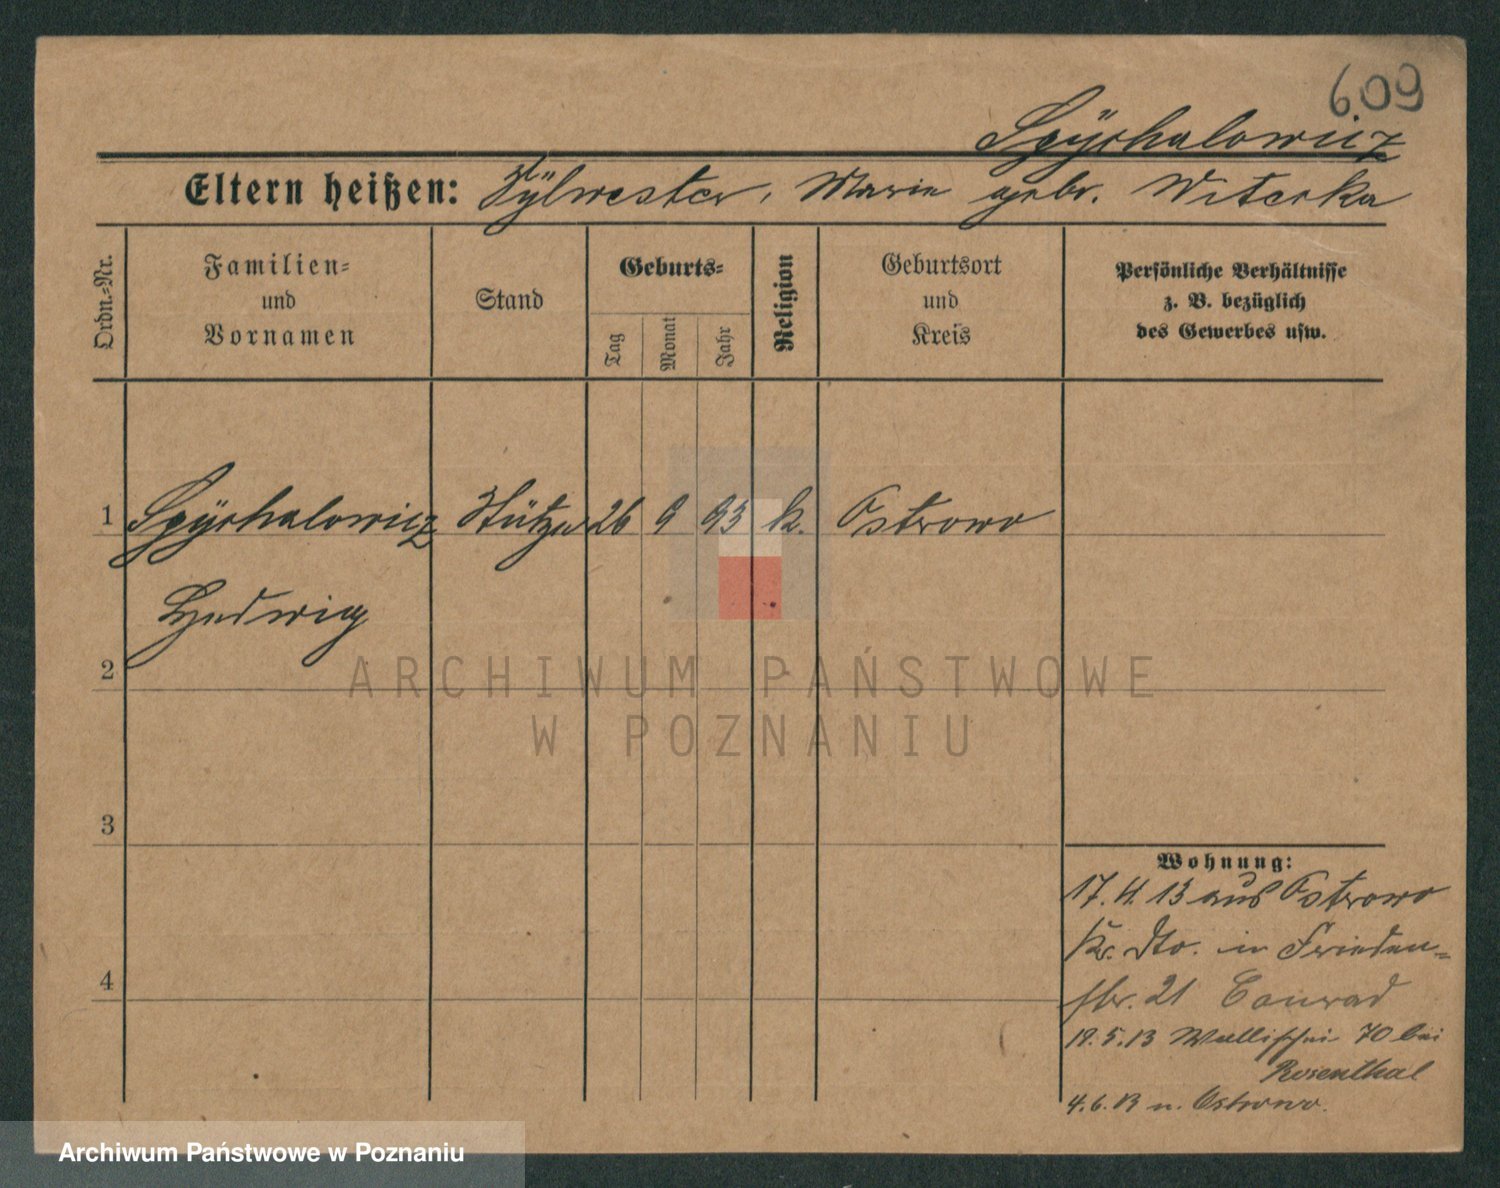 609
Spÿchalowicz
Eltern heißen: Sÿlwester, Marie gebr. Witecka
Ordn.-Nr.
Familien-
und
Vornamen
Stand
Geburts-
Tag
Monat
Jahr
Religion
Geburtsort
und
Kreis
Persönliche Verhältnisse
z. B. bezüglich
des Gewerbes usw.
1 Spÿchalowicz Stütze 26 9 93 k. Ostrowo
Hedwig
2
3
4
Wohnung:
17. 4. 13 aus Ostrowo
Kr. dto. in Frieden-
str. 21 Conrad
19. 5. 13 Wallischei 70 bei
Rosenthal
4. 6. 13 n. Ostrowo.
ARCHIWUM PAŃSTWOWE
W POZNANIU
Archiwum Państwowe w Poznaniu